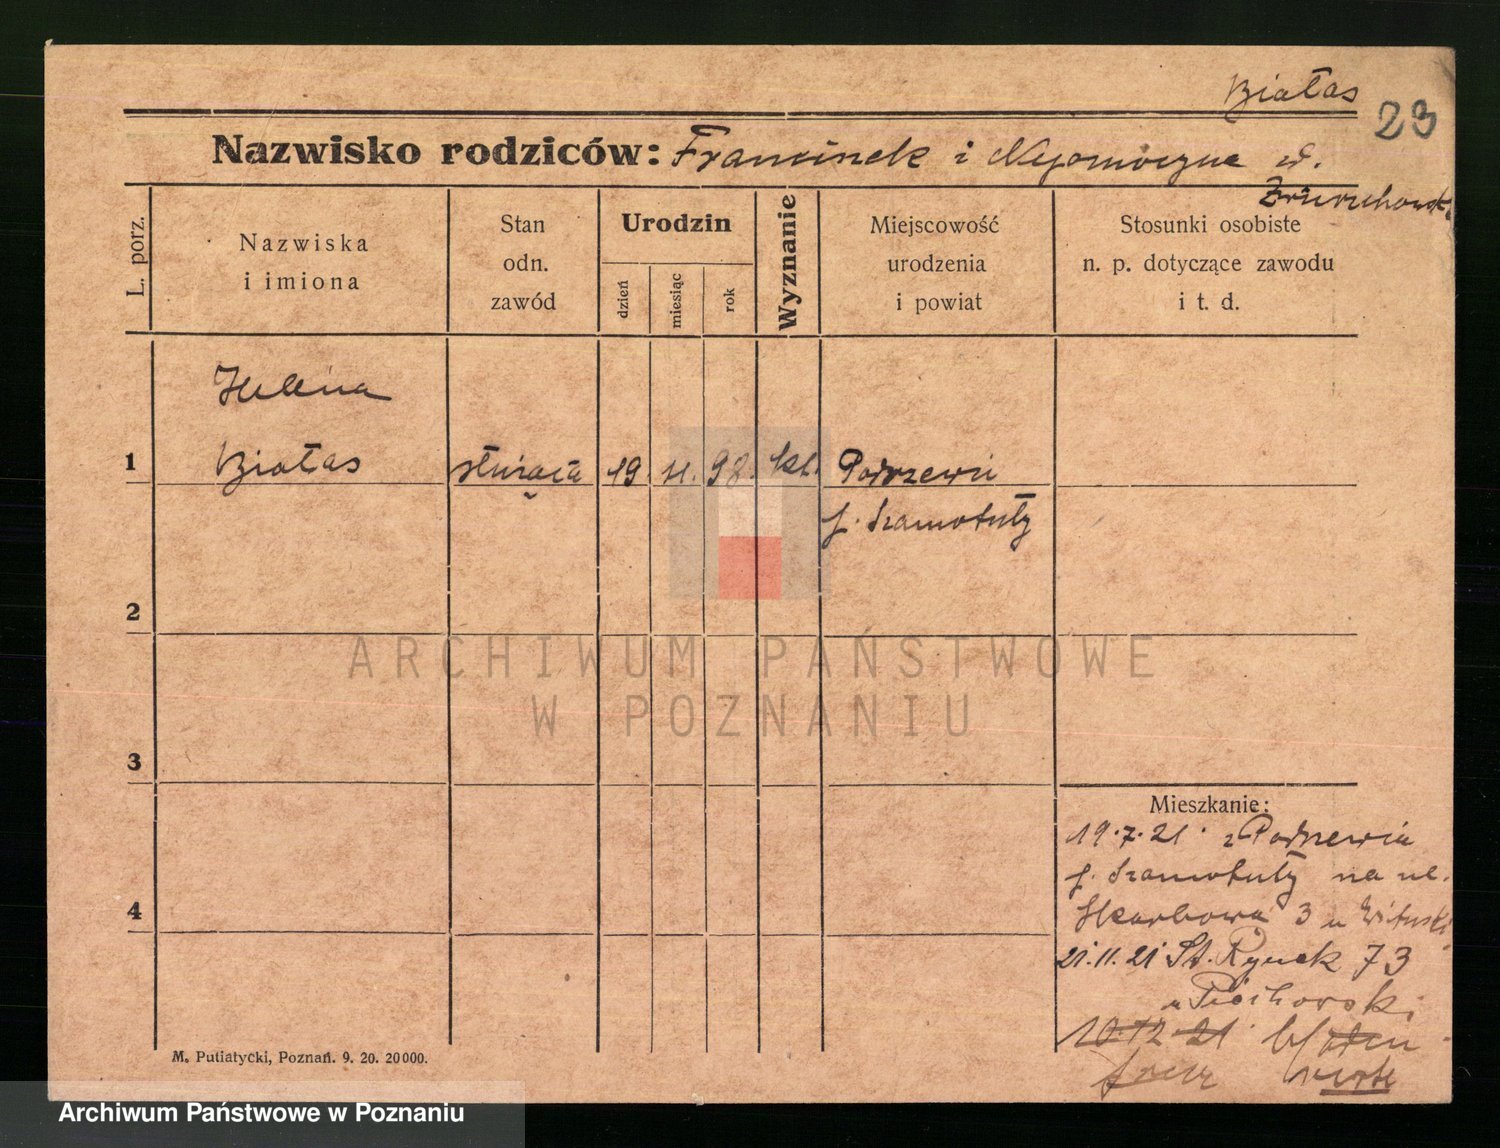 Białas
23
Nazwisko rodziców: Franciszek i Nepomocyna z d.
L. porz.
Nazwiska
i imiona
Stan
odn.
zawód
Urodzin
dzień
miesiąc
rok
Wyznanie
Miejscowość
urodzenia
i powiat
Stosunki osobiste
n. p. dotyczące zawodu
i t. d.
Helena
1 Białas służąca 19. 11. 98. kat. Podrzewie
p. Szamotuły
2
3
4
ARCHIWUM PAŃSTWOWE
W POZNANIU
Mieszkanie:
19.7.21 z Podrzewia
p. Szamotuły na ul.
Skarbowa 3 u
21.11.21 St. Rynek 73
u Piechorski
10.12.21
M. Putiatycki, Poznań. 9. 20. 20000.
Archiwum Państwowe w Poznaniu